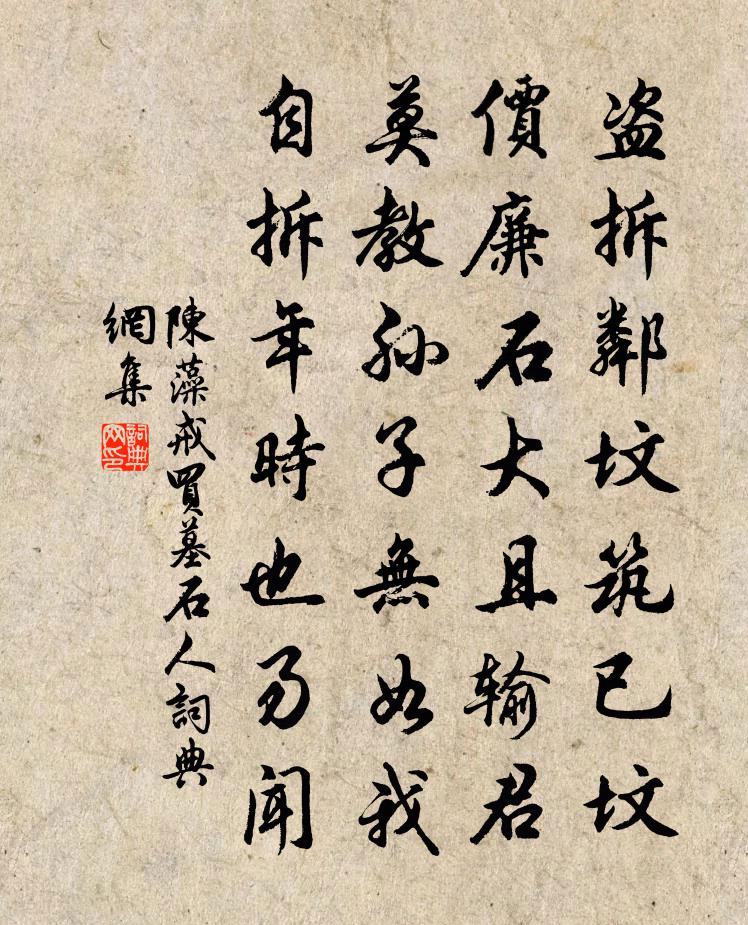 盗拆鄰坟筑已坟
價廉石大且输君
莫教孙子無如我
自拆年時也闻
陳藻戒買墓石人詞典
網集
詞典
网印